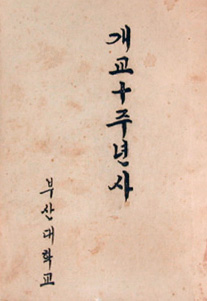 개교十주년사
부산대학교